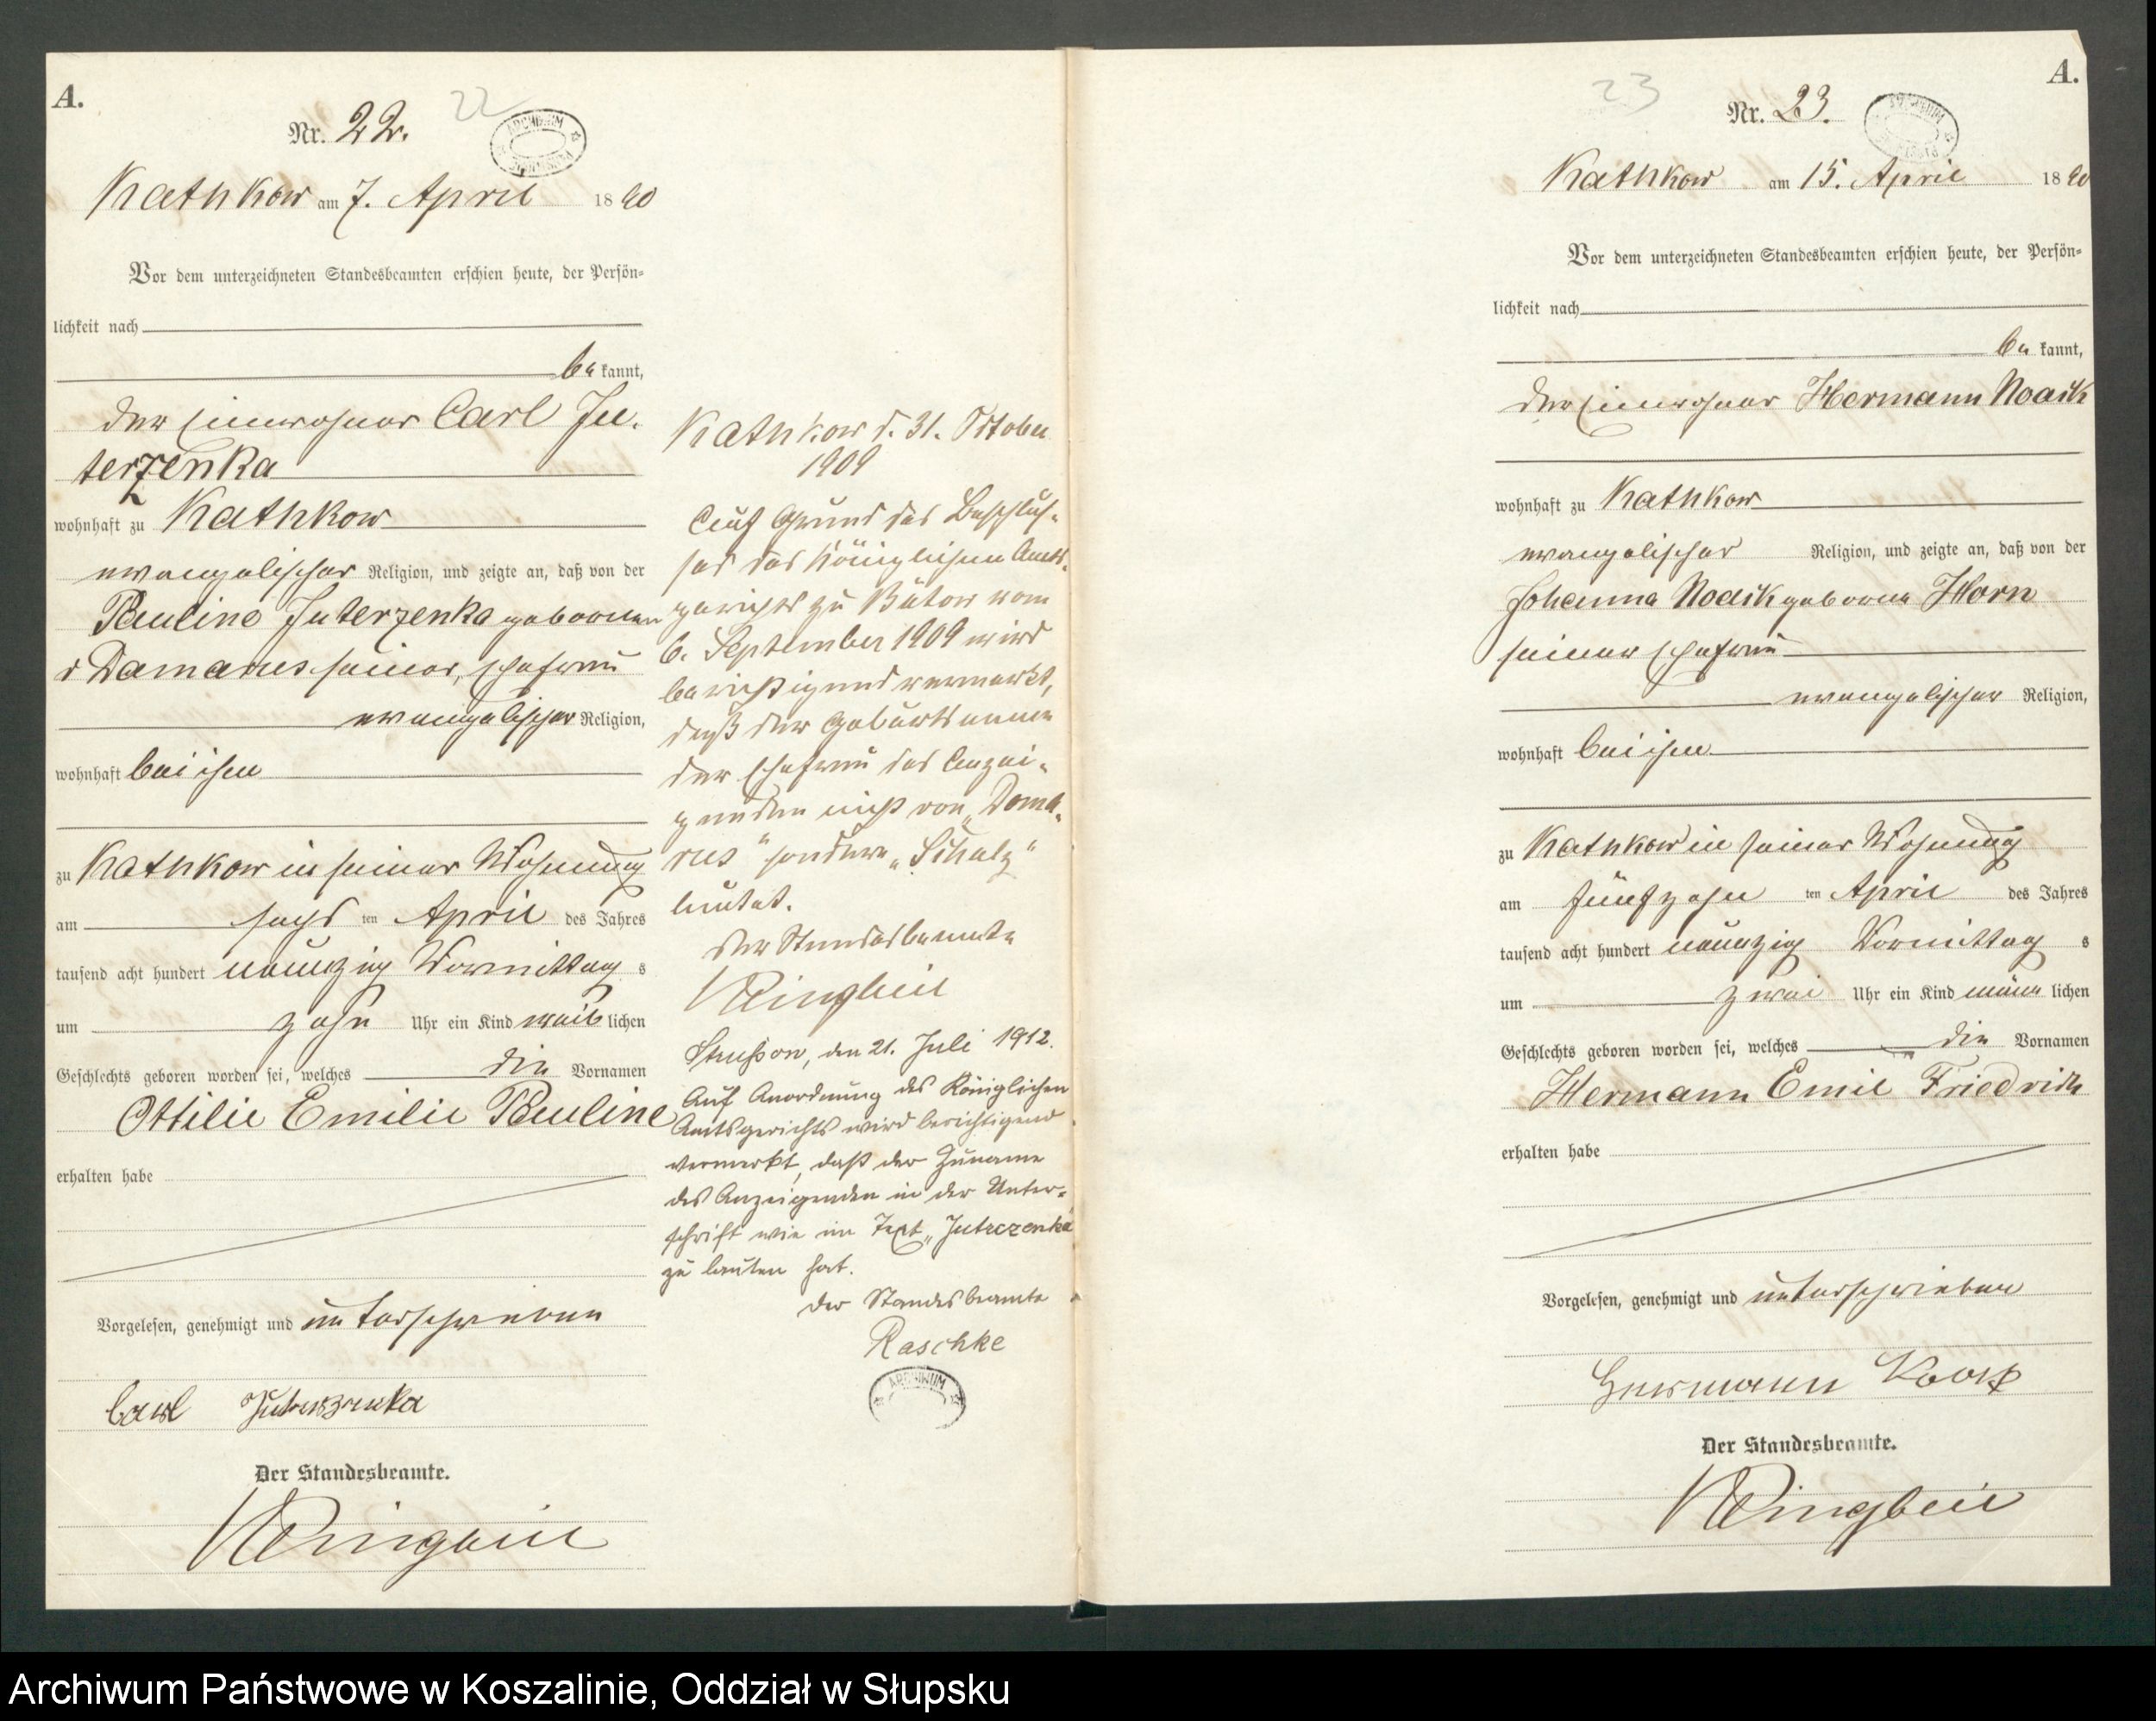 A.
Nr. 22.
22
ARCHIWUM
Kathkow am 7. April 1890
Vor dem unterzeichneten Standesbeamten erschien heute, der Persön-
lichkeit nach
be kannt,
der Einwohner Carl Ju-
terzenka
wohnhaft zu Kathkow
evangelischer Religion, und zeigte an, daß von der
Pauline Juterzenka geborenen
Damarus seiner Ehefrau
evangelischer Religion,
wohnhaft bei ihm
zu Kathkow in seiner Wohnung
am sechs ten April des Jahres
tausend acht hundert neunzig Vormittag s
um zehn Uhr ein Kind weib lichen
Geschlechts geboren worden sei, welches die Vornamen
Ottilie Emilie Pauline
erhalten habe
Vorgelesen, genehmigt und unterschrieben
Carl
Der Standesbeamte.
Klingbeil
Kathkow d. 31. Oktober
1909
Auf Grund des Beschlus-
ses des Königlichen Amts-
gerichts zu Bütow vom
6. September 1909 wird
berichtigend vermerkt,
daß der Geburtsname
der Ehefrau des Anzei-
genden nicht von „Dama-
rus" sondern „Schulz"
lautet.
Der Standesbeamte
Klingbeil
den 21. Juli 1912.
Auf Anordnung des Königlichen
Amtsgerichts wird berichtigend
vermerkt, daß der Zuname
des Anzeigenden in der Unter-
schrift wie im Text „Jutrzenka"
zu lauten hat.
Der Standesbeamte
Raschke
ARCHIWUM
A.
23
Nr. 23.
Kathkow am 15. April 1890
Vor dem unterzeichneten Standesbeamten erschien heute, der Persön-
lichkeit nach
be kannt,
der Einwohner Hermann Noack
wohnhaft zu Kathkow
evangelischer Religion, und zeigte an, daß von der
Johanna Noack geborene Horn
seiner Ehefrau
evangelischer Religion,
wohnhaft bei ihm
zu Kathkow in seiner Wohnung
am fünfzehn ten April des Jahres
tausend acht hundert neunzig Vormittag s
um zwei Uhr ein Kind männ lichen
Geschlechts geboren worden sei, welches die Vornamen
Hermann Emil Friedrich
erhalten habe
Vorgelesen, genehmigt und unterschrieben
Hermann Noack
Der Standesbeamte.
Klingbeil
Archiwum Państwowe w Koszalinie, Oddział w Słupsku